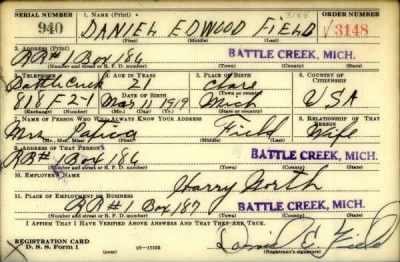 SERIAL NUMBER 1. NAME (Print) ORDER NUMBER
940 DANIEL EDWOOD FIELD V3148
(First) (Middle) (Last)
2. ADDRESS (Print)
RR#1 Box 186 BATTLE CREEK, MICH.
(Number and street or R. F. D. number) (Town) (County) (State)
3. TELEPHONE 4. AGE IN YEARS 5. PLACE OF BIRTH 6. COUNTRY OF CITIZENSHIP
Battle Creek 21
DATE OF BIRTH
811F31 Mar 11 1919 Mich USA
(Exchange) (Number) (Mo.) (Day) (Yr.) (State or country)
7. NAME OF PERSON WHO WILL ALWAYS KNOW YOUR ADDRESS 8. RELATIONSHIP OF THAT PERSON
Mrs. Field Wife
(Mr., Mrs., Miss) (First) (Middle) (Last)
9. ADDRESS OF THAT PERSON
RR#1 Box 186 BATTLE CREEK, MICH.
(Number and street or R. F. D. number) (Town) (County) (State)
10. EMPLOYER'S NAME
Harry North
11. PLACE OF EMPLOYMENT OR BUSINESS
RR#1 Box 187 BATTLE CREEK, MICH.
(Number and street or R. F. D. number) (Town) (County) (State)
I AFFIRM THAT I HAVE VERIFIED ABOVE ANSWERS AND THAT THEY ARE TRUE.
REGISTRATION CARD
D. S. S. Form 1 16-17105 Daniel E. Field
(Registrant's signature)